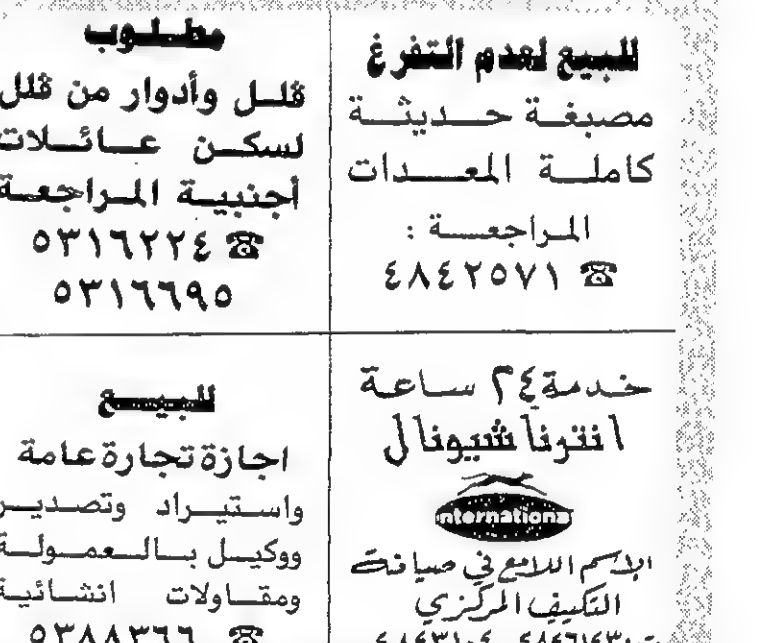 للبيع لعدم التفرغ
مصبغة حديثة
كاملة المعدات
المراجعة :
☎ ٤٨٤٢٥٧١
مطلوب
ڤلل وأدوار من ڤلل
لسكن عائلات
أجنبية المراجعة
☎ ٥٣١٦٢٢٤
٥٣١٦٦٩٥
خدمة ٢٤ ساعة
انترناشيونال
international
الإسم اللامع في صيانة
التكييف المركزي
للبيع
اجازة تجارة عامة
واستيراد وتصدير
ووكيل بالعمولة
ومقاولات انشائية
☎ ٥٣٨٨٣٦٦